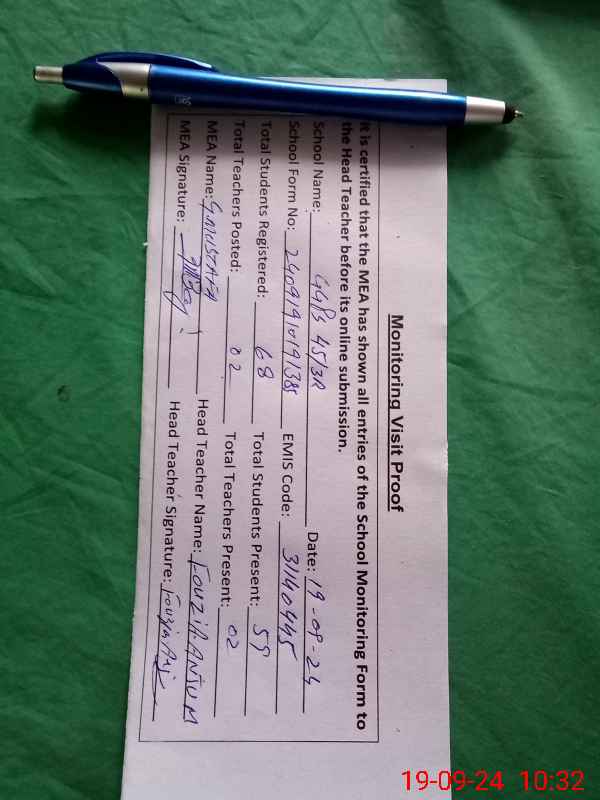 Monitoring Visit Proof
It is certified that the MEA has shown all entries of the School Monitoring Form to
the Head Teacher before its online submission.
School Name: GGPS 45/3R Date: 19-09-24
School Form No: EMIS Code: 31140445
Total Students Registered: 68 Total Students Present: 59
Total Teachers Posted: 02 Total Teachers Present: 02
MEA Name: G.MUSTAFA Head Teacher Name: FOUZIA ANJUM
MEA Signature: Head Teacher Signature: Fouzia Anj
19-09-24 10:32